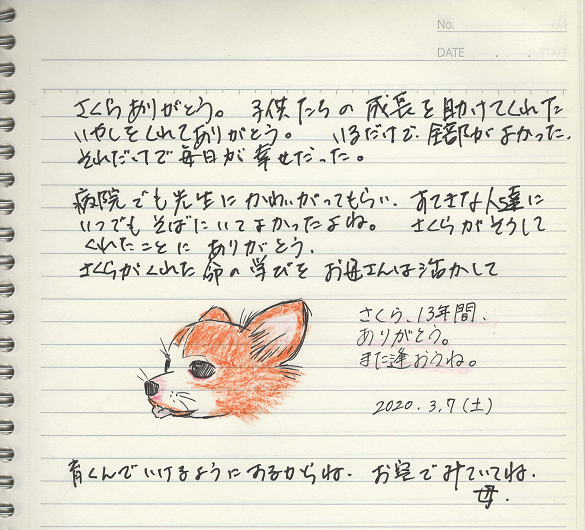 No.
DATE . . .
さくらありがとう。 子供たちの成長を助けてくれた
いやしをくれてありがとう。 いるだけで、全部がよかった。
それだけで毎日が幸せだった。
病院でも先生にかわいがってもらい、すてきな人達に
いつでもそばにいてよかったよね。 さくらがそうして
くれたことに ありがとう.
さくらがくれた命の学びを お母さんは活かして
さくら、13年間、
ありがとう。
また逢おうね。
2020.3.7(土)
育くんでいけるようにするからね. お空でみていてね.
母.